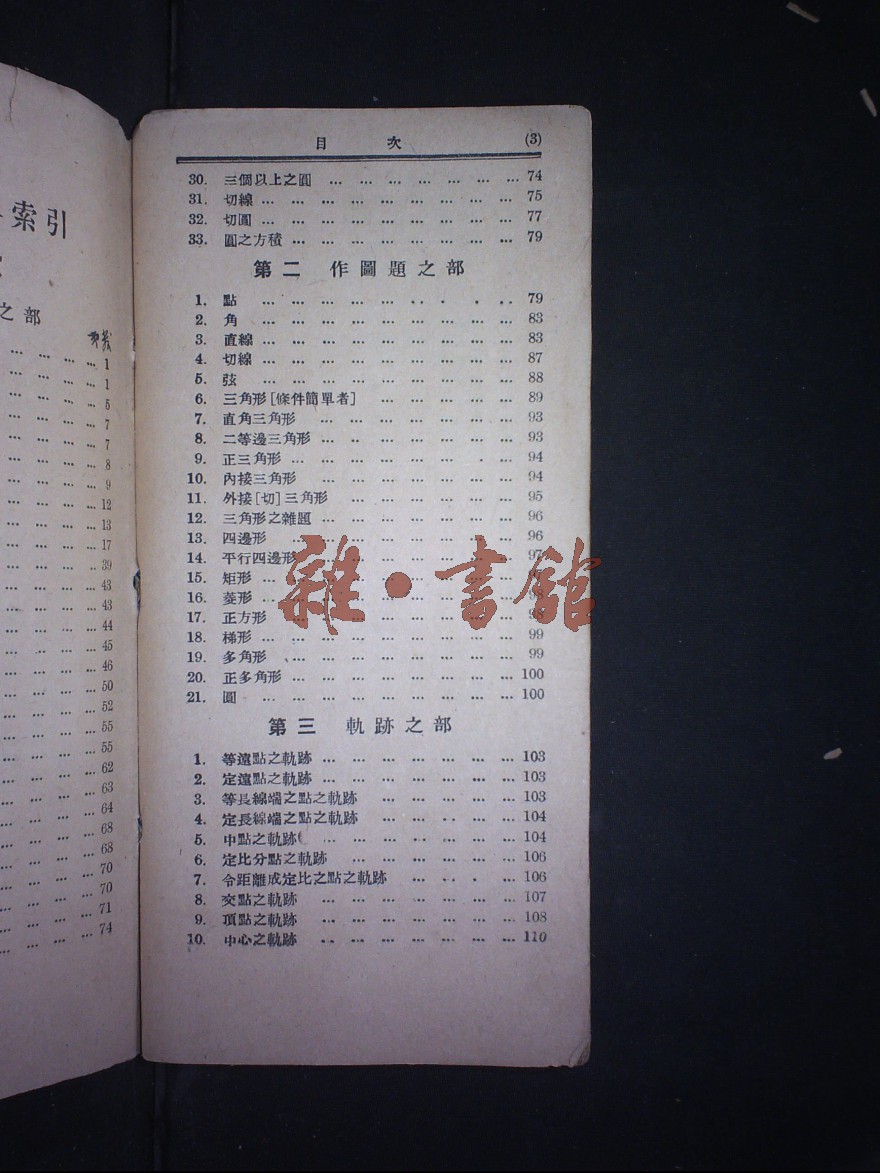 索引
之部
… … … … 1
… … … … 1
… … … … 5
… … … … 7
… … … … 7
… … … … 8
… … … … 9
… … … … 12
… … … … 13
… … … … 17
… … … … 39
… … … … 43
… … … … 43
… … … … 44
… … … … 45
… … … … 46
… … … … 50
… … … … 52
… … … … 55
… … … … 55
… … … … 62
… … … … 63
… … … … 64
… … … … 68
… … … … 68
… … … … 70
… … … … 70
… … … … 71
… … … … 74
目 次 (3)
30. 三個以上之圓 … … … … … … … 74
31. 切線 … … … … … … … … … 75
32. 切圓 … … … … … … … … … 77
33. 圓之方積 … … … … … … … … 79
第二 作圖題之部
1. 點 … … … … … … … … … 79
2. 角 … … … … … … … … … 83
3. 直線 … … … … … … … … … 83
4. 切線 … … … … … … … … … 87
5. 弦 … … … … … … … … … 88
6. 三角形[條件簡單者] … … … … … 89
7. 直角三角形 … … … … … … … 93
8. 二等邊三角形 … … … … … … … 93
9. 正三角形 … … … … … … … … 94
10. 內接三角形 … … … … … … … 94
11. 外接[切]三角形 … … … … … … 95
12. 三角形之雜題 … … … … … … … 96
13. 四邊形 … … … … … … … … 96
14. 平行四邊形 … … … … … … … 97
15. 矩形 … … … … … … … … …
16. 菱形 … … … … … … … … … 98
17. 正方形 … … … … … … … … 98
18. 梯形 … … … … … … … … … 99
19. 多角形 … … … … … … … … 99
20. 正多角形 … … … … … … … … 100
21. 圓 … … … … … … … … … 100
第三 軌跡之部
1. 等遠點之軌跡 … … … … … … … 103
2. 定遠點之軌跡 … … … … … … … 103
3. 等長線端之點之軌跡 … … … … … 103
4. 定長線端之點之軌跡 … … … … … 104
5. 中點之軌跡 … … … … … … … 104
6. 定比分點之軌跡 … … … … … … 106
7. 令距離成定比之點之軌跡 … … … … 106
8. 交點之軌跡 … … … … … … … 107
9. 頂點之軌跡 … … … … … … … 108
10. 中心之軌跡 … … … … … … … 110
雜·書館